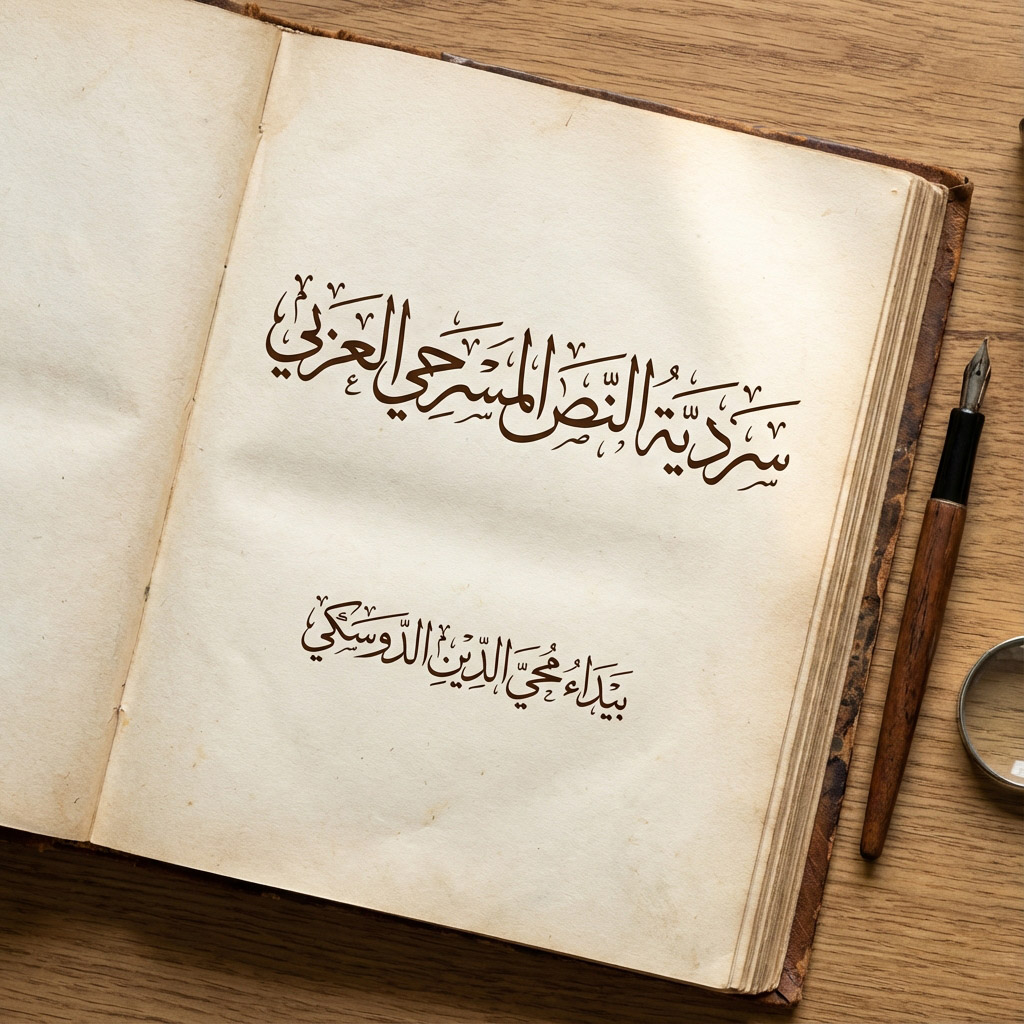 سَرديَّةُ النَّص المسَرحِي العَربي
بَيْدَاءُ مُحيَ الدِّيْنِ الدَّوسَكي